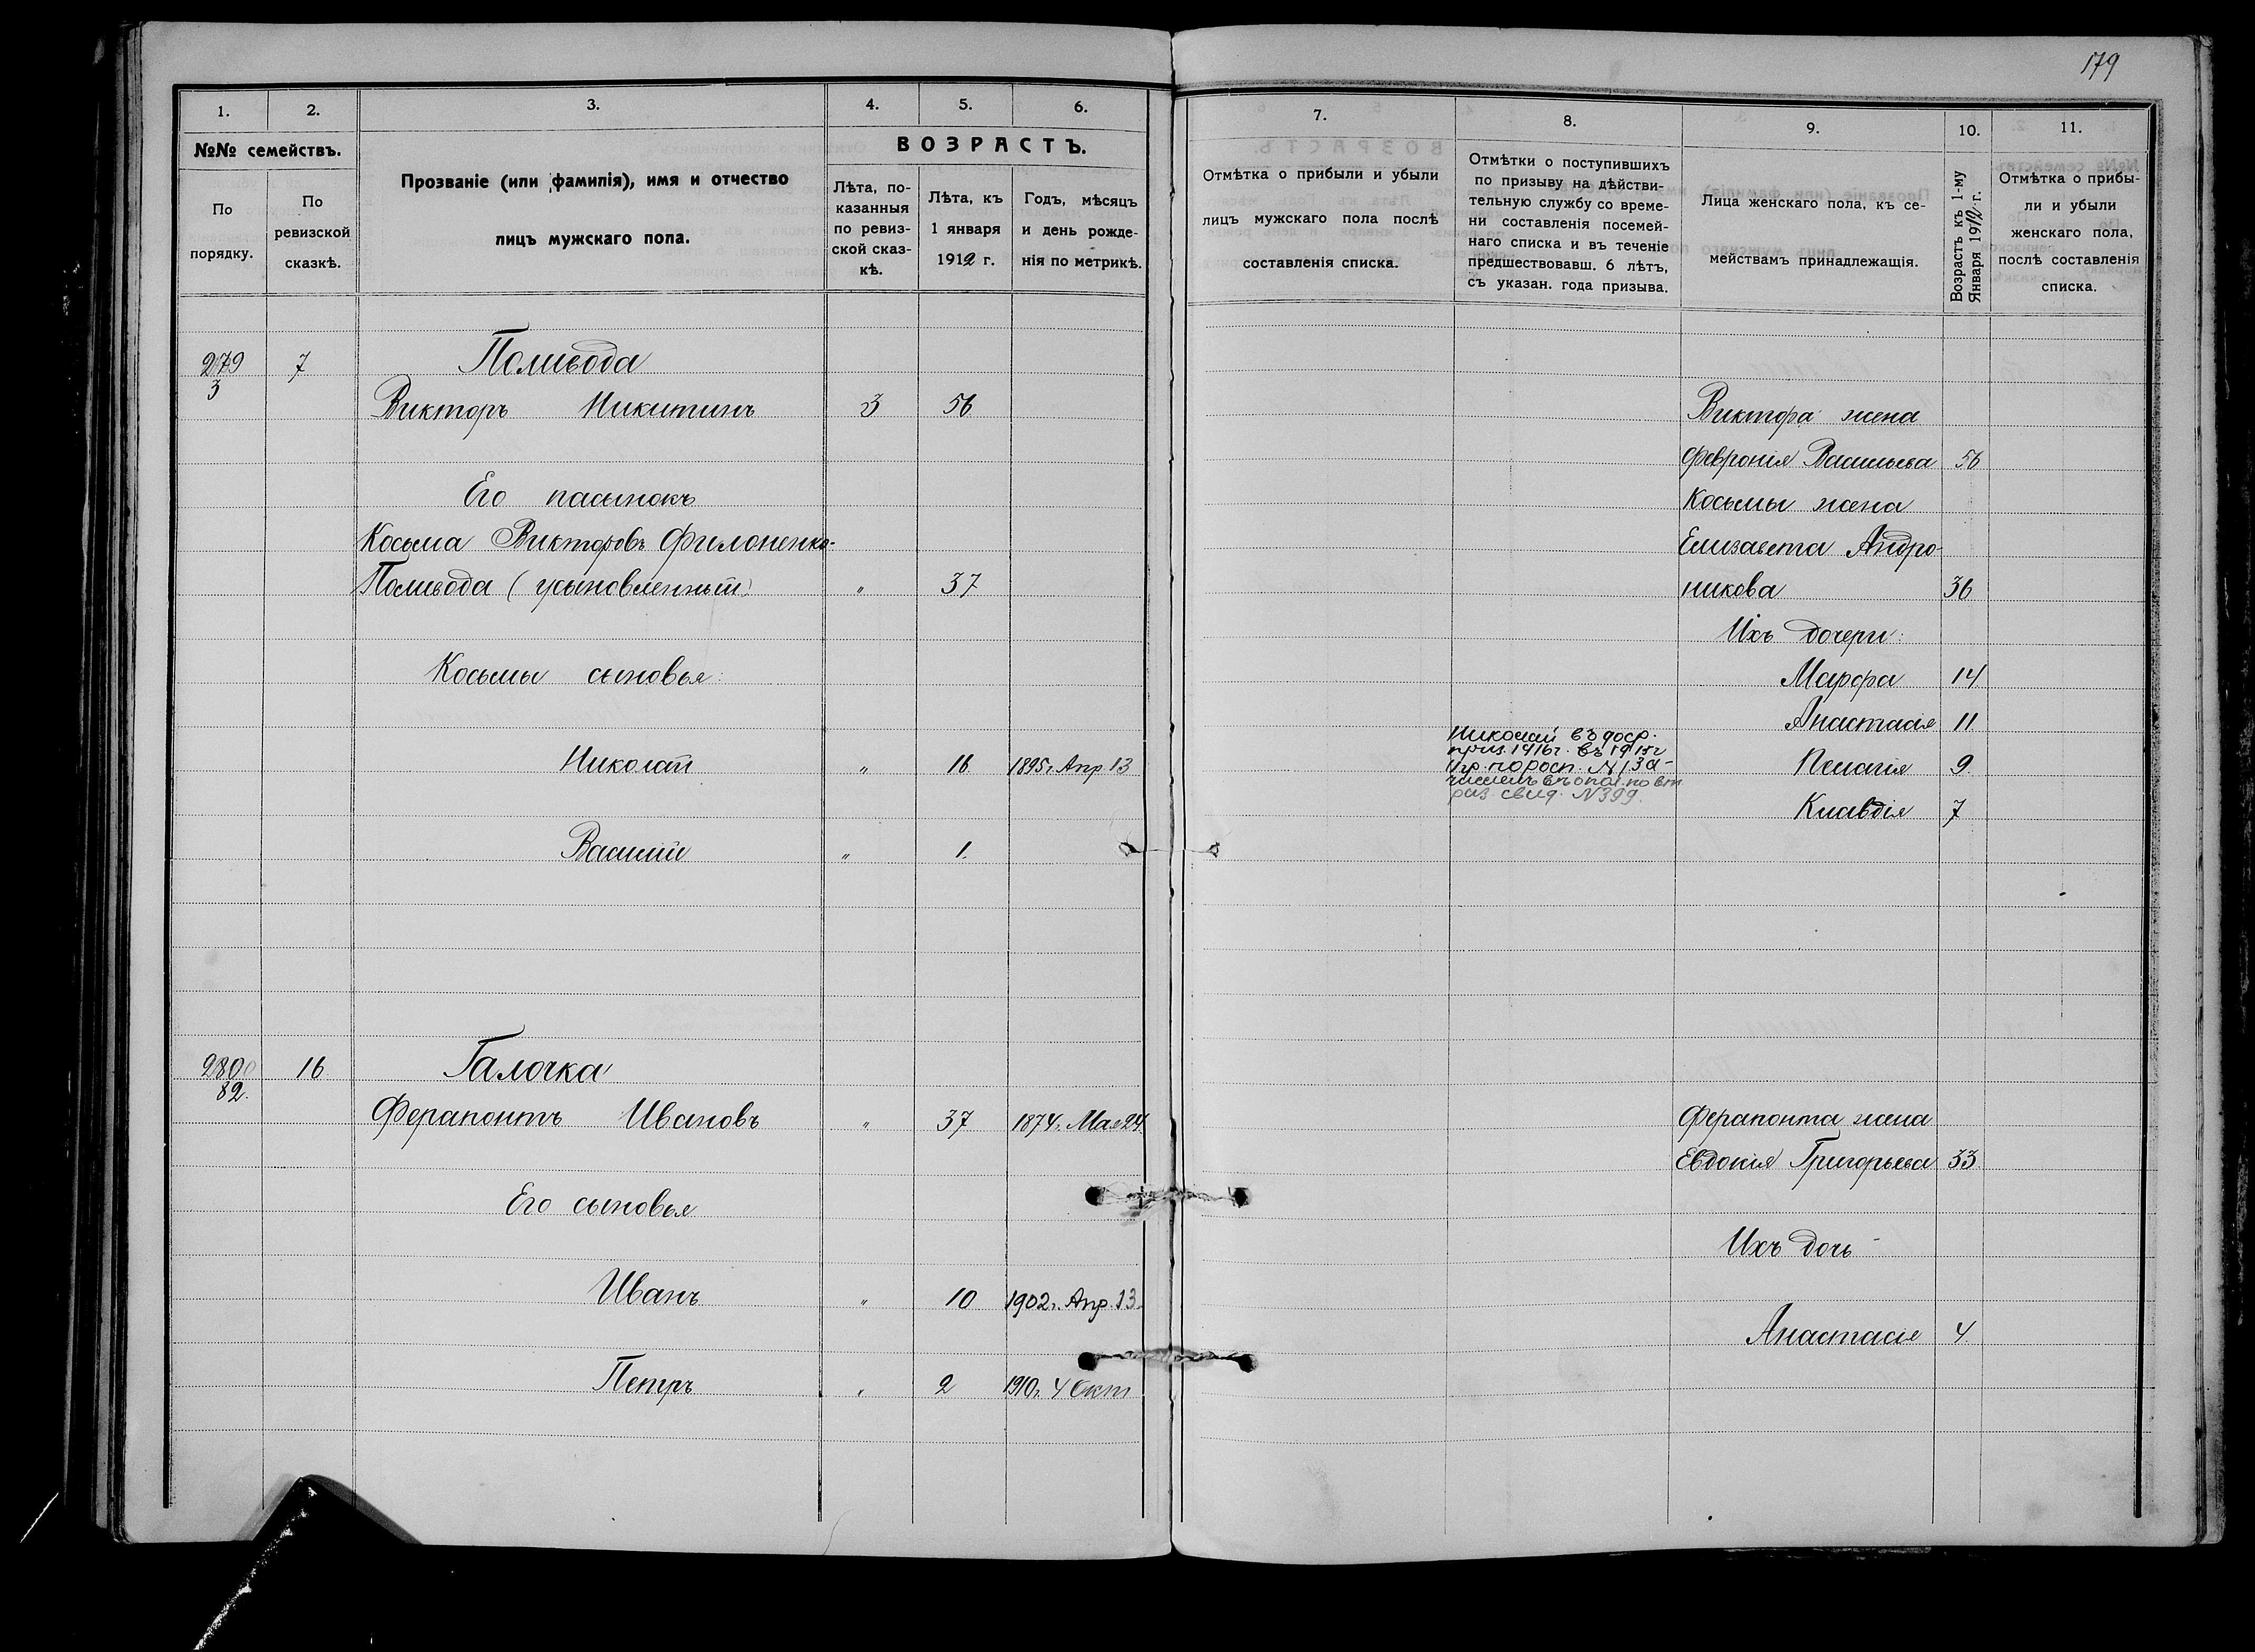 179
1.
2.
3.
4.
5.
6.
№№ семействъ.
По порядку.
По ревизской сказкѣ.
Прозваніе (или фамилія), имя и отчество
лицъ мужскаго пола.
ВОЗРАСТЪ.
Лѣта, по-
казанныя
по ревиз-
ской сказ-
кѣ.
Лѣта, къ
1 января
1912 г.
Годъ, мѣсяцъ
и день рожде-
нія по метрикѣ.
279 7 Поливода
3
Викторъ Никитинъ 3 56
Его пасынокъ
Косьма Викторовъ Филоненко-
Поливода (усыновленный) " 37
Косьмы сыновья:
Николай " 16 1895г. Апр. 13
Василій " 1.
280 16 Галочка
82.
Ферапонтъ Ивановъ " 37 1874г. Мая 24.
Его сыновья
Иванъ " 10 1902г. Апр. 13.
Петръ " 2 1910г. 4 Окт
7.
8.
9.
10.
11.
Отмѣтка о прибыли и убыли
лицъ мужскаго пола послѣ
составленія списка.
Отмѣтки о поступившихъ
по призыву на дѣйстви-
тельную службу со време-
ни составленія посемей-
наго списка и въ теченіе
предшествовавш. 6 лѣтъ,
съ указан. года призыва.
Лица женскаго пола, къ се-
мействамъ принадлежащія.
Возрастъ къ 1-му
Января 1912 г.
Отмѣтка о прибы-
ли и убыли
женскаго пола,
послѣ составленія
списка.
Виктора жена
Февронія Васильева 56
Косьмы жена
Елизавета Андро-
никова 36
Ихъ дочери:
Марфа 14
Анастасія 11
Пелагія 9
Клавдія 7
Николай въ доср.
приз. 1916г. въ 1915г
по росп. № за-
численъ въ опол. по
раз. свид. №399.
Ферапонта жена
Евдокія Григорьева 33
Ихъ дочь
Анастасія 4